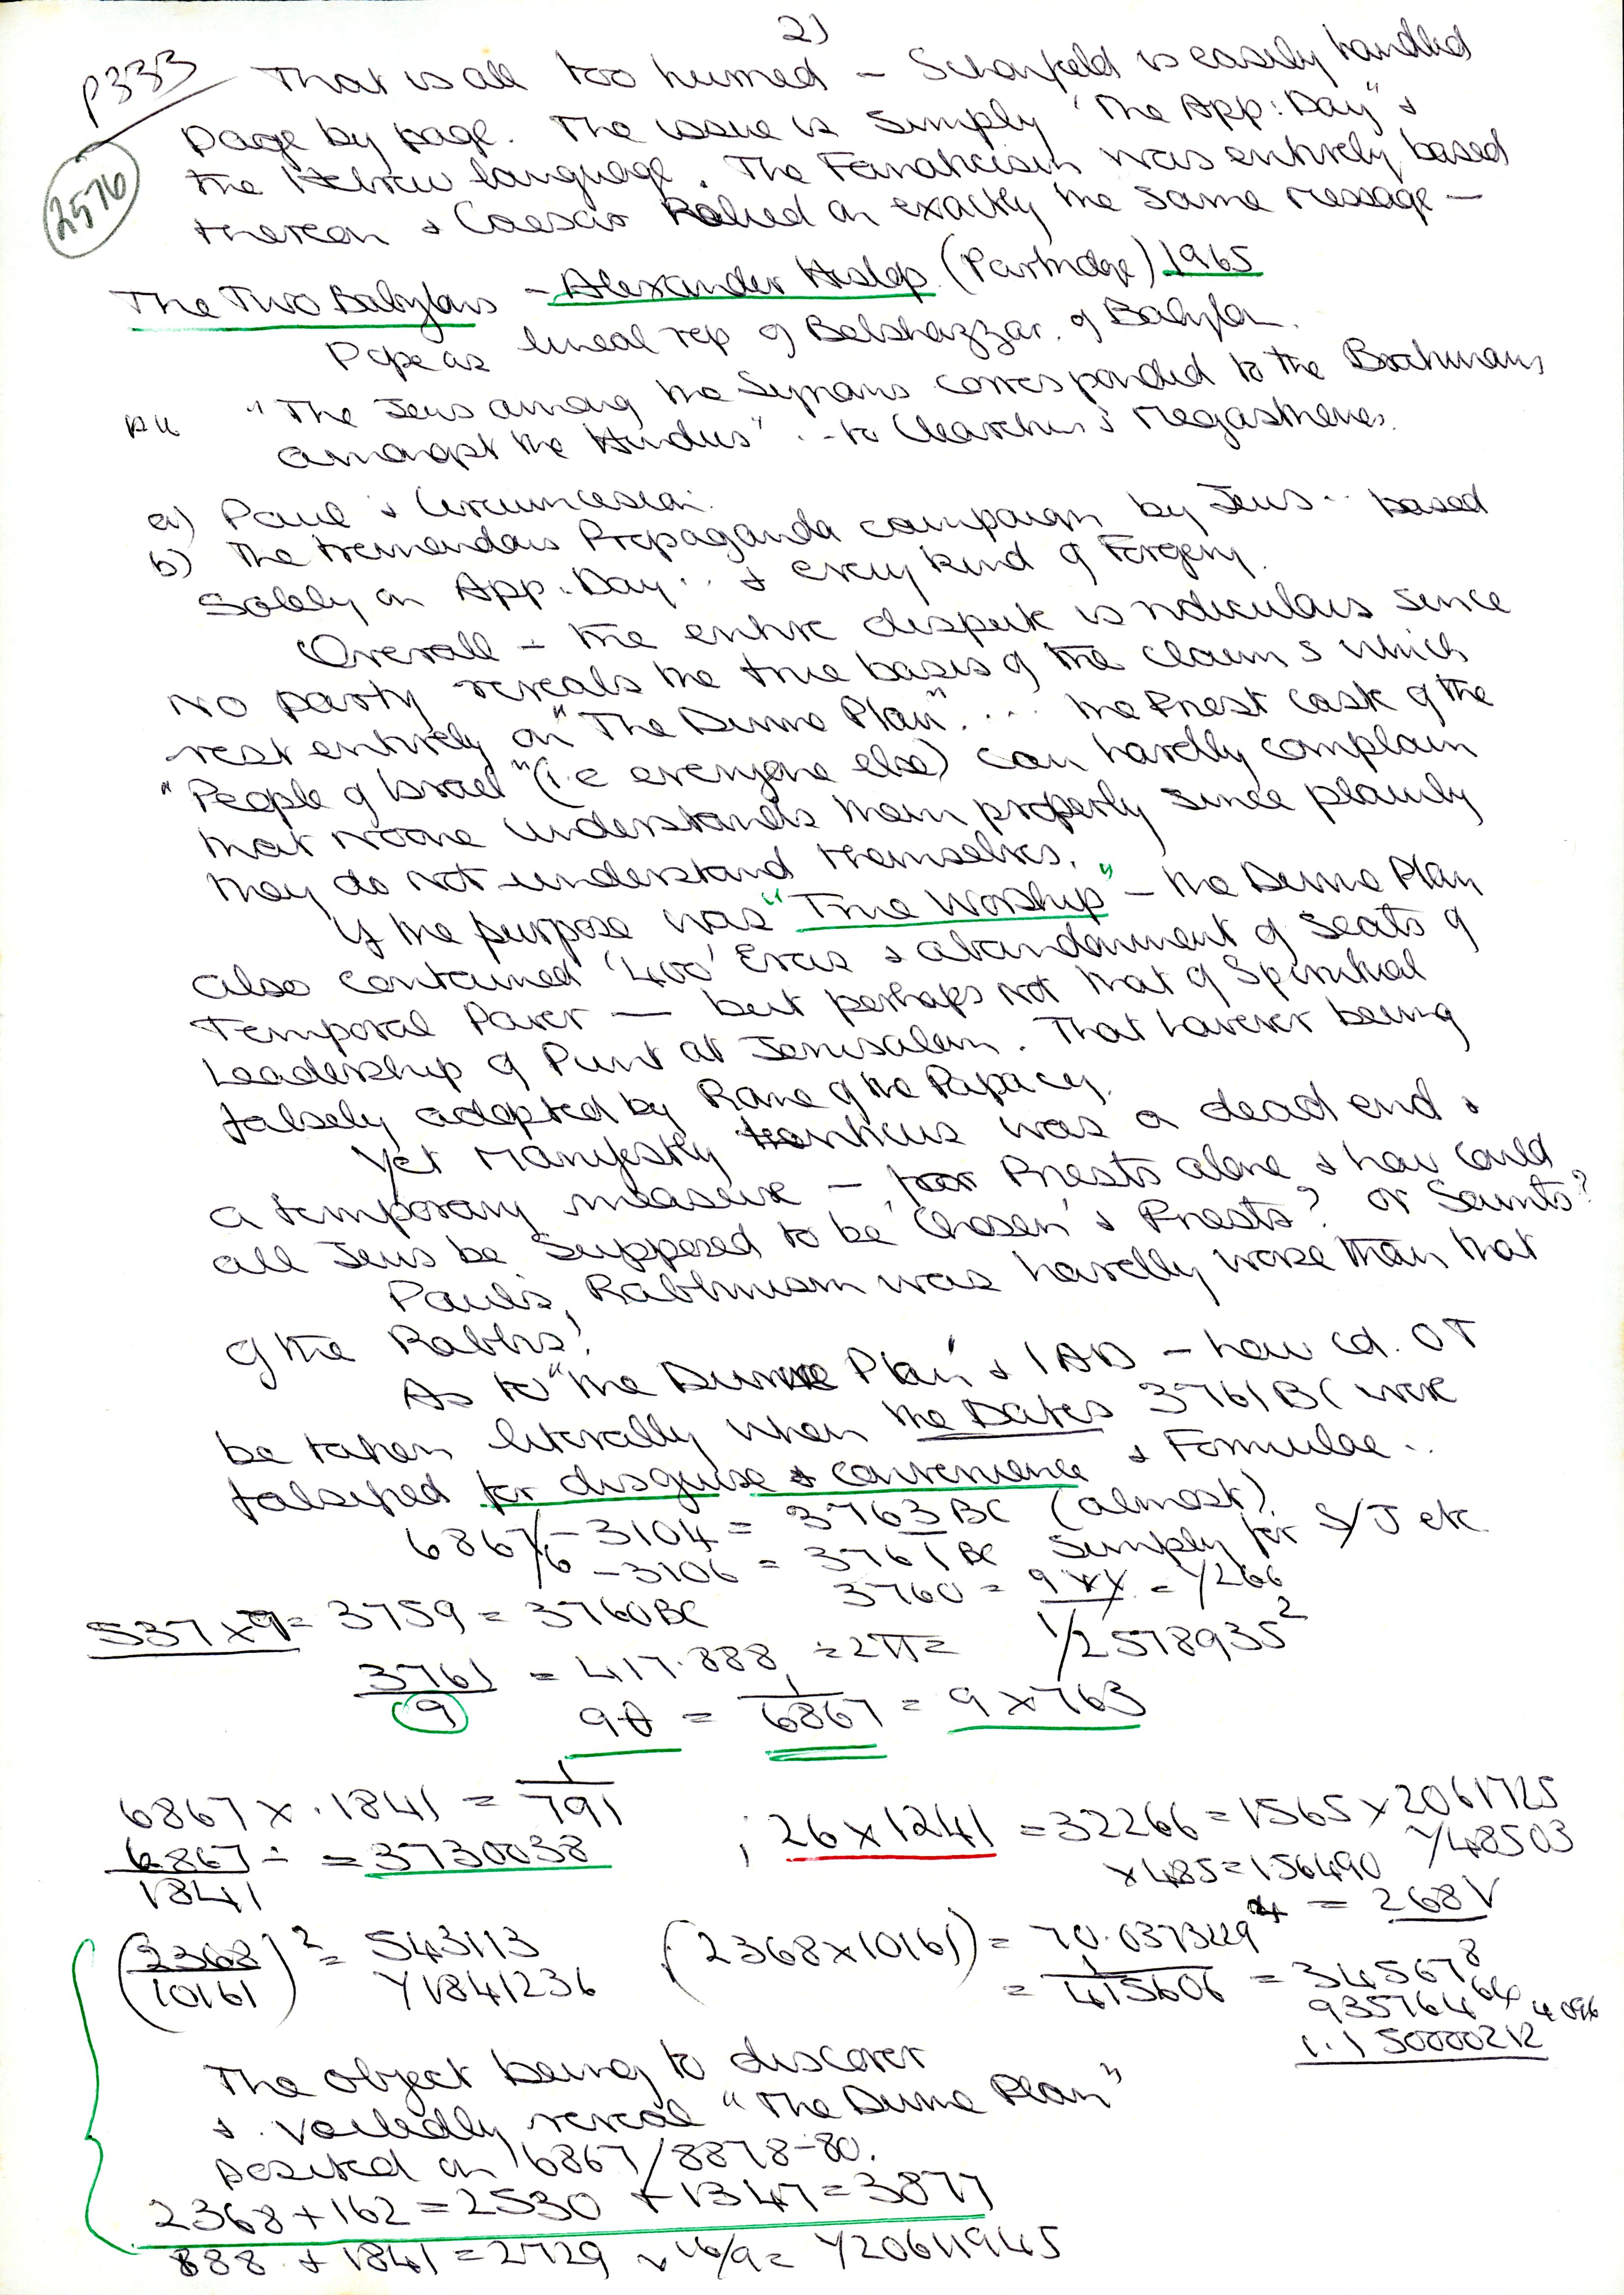 2)
P333
2576
That is all too hurried – Schonfeld is easily handled
page by page. The issue is simply "The App: Day" &
the Hebrew language. The Fanaticism was entirely based
thereon & Caesar Relied on exactly the same message –
The Two Babylons – Alexander Hislop. (Partridge) 1965
Pope as lineal rep of Belshazzar. of Babylon.
"The Jews among the Syrians corresponded to the Brahmans
amongst the Hindus" .. to Clearchus & Megasthenes.
a) Paul & Circumcision.
b) The tremendous Propaganda campaign by Jews .. based
solely on App. Day .. & every kind of Forgery.
Overall – the entire dispute is ridiculous since
No party reveals the true basis of the claims which
rest entirely on "The Divine Plan". ... the Priest caste of the
"People of Israel" (i.e everyone else) can hardly complain
that Noone understands them properly since plainly
they do not understand themselves.
If the purpose was "True Worship" – the Divine Plan
also contained '400' Eras & abandonment of Seats of
Temporal Power — but perhaps not that of Spiritual
Leadership of Punt at Jerusalem. That however being
falsely adopted by Rome of the Papacy.
Yet Manifestly was a dead end &
a temporary measure – for Priests alone & how could
all Jews be supposed to be 'Chosen' & Priests? or Saints?
Paul's, Rabbinism was hardly worse than that
of the Rabbis!
As to "the Divine Plan" & 1AD – how cd. OT
be taken literally when the Dates 3761BC were
falsified for disguise & convenience & Formulae ..
6867/6 – 3104 = 3763 BC (almost)
– 3106 = 3761 BC Simply for S/J etc.
537 x 7 = 3759 = 3760BC 3760 = = Y266
3761/9 = 417.888 ÷2π= 1/2578935²
9θ = 1/6867 = 9 x 763
6867 x .1841 = 1/791 ; 26 x 1241 = 32266 = 1565 x 2061725
6867 ÷ 1841 = 3730038 x485=156490 Y48503
= 268V
(2368/10161)² = 543113 (2368x10161) = 70.0373249⁴
Y1841236 = 1/415606 = 345678
935764 64 4096
1.150000212
The object being to discover
& veiledly reveal "The Divine Plan"
posited on 6867/8878-80.
2368 + 162 = 2530 + 1347 = 3877
888 + 1841 = 2729 x 16/9 = Y20611945